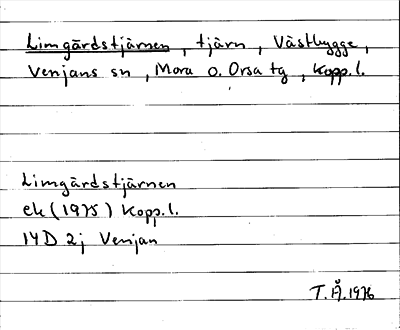 Limgärdstjärnen, tjärn, Västbygge,
Venjans sn, Mora o. Orsa tg, Kopp.l.
Limgärdstjärnen
ek (1975) Kopp.l.
14D 2j Venjan
T.Å.1976